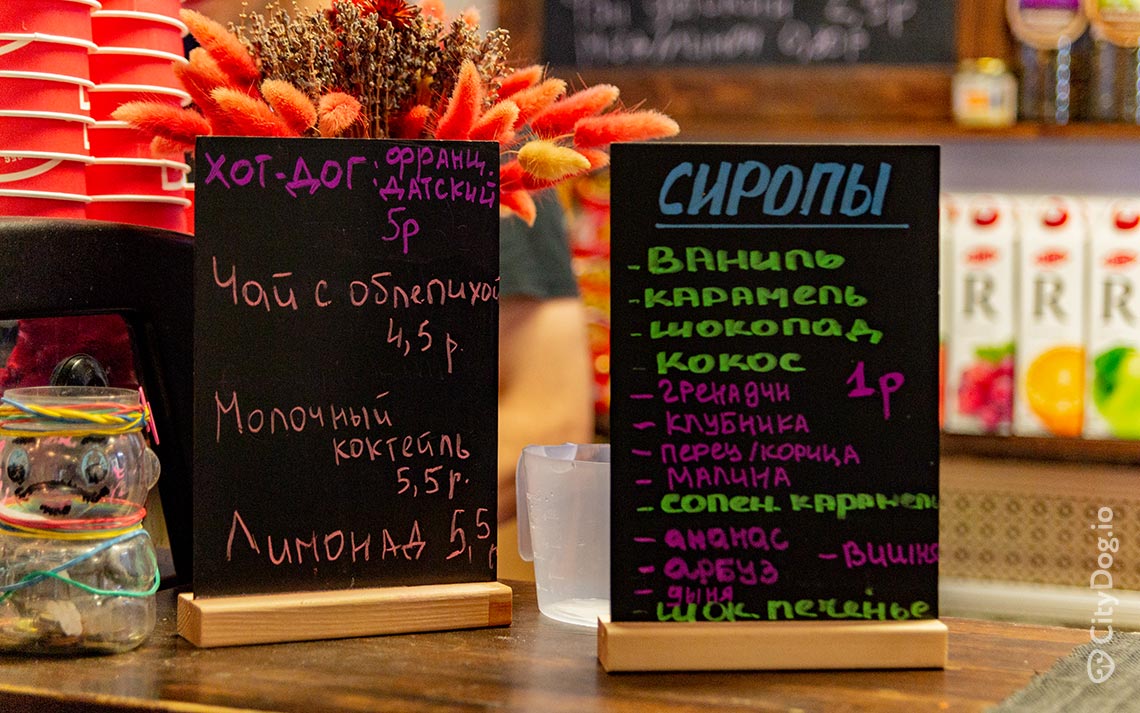 ХОТ-ДОГ: ФРАНЦ.
ДАТСКИЙ
5р
Чай с облепихой
4,5 р.
Молочный
коктейль
5,5 р.
Лимонад 5,5
р
СИРОПЫ
- ВАНИЛЬ
- КАРАМЕЛЬ
- ШОКОЛАД
- КОКОС
- ГРЕНАДИН 1р
- КЛУБНИКА
- ПЕРЕЦ/КОРИЦА
- МАЛИНА
- СОЛЕН. КАРАМЕЛЬ
- АНАНАС
- ВИШНЯ
- АРБУЗ
- ДЫНЯ
- ШОК. ПЕЧЕНЬЕ
R R R
CityDog.io